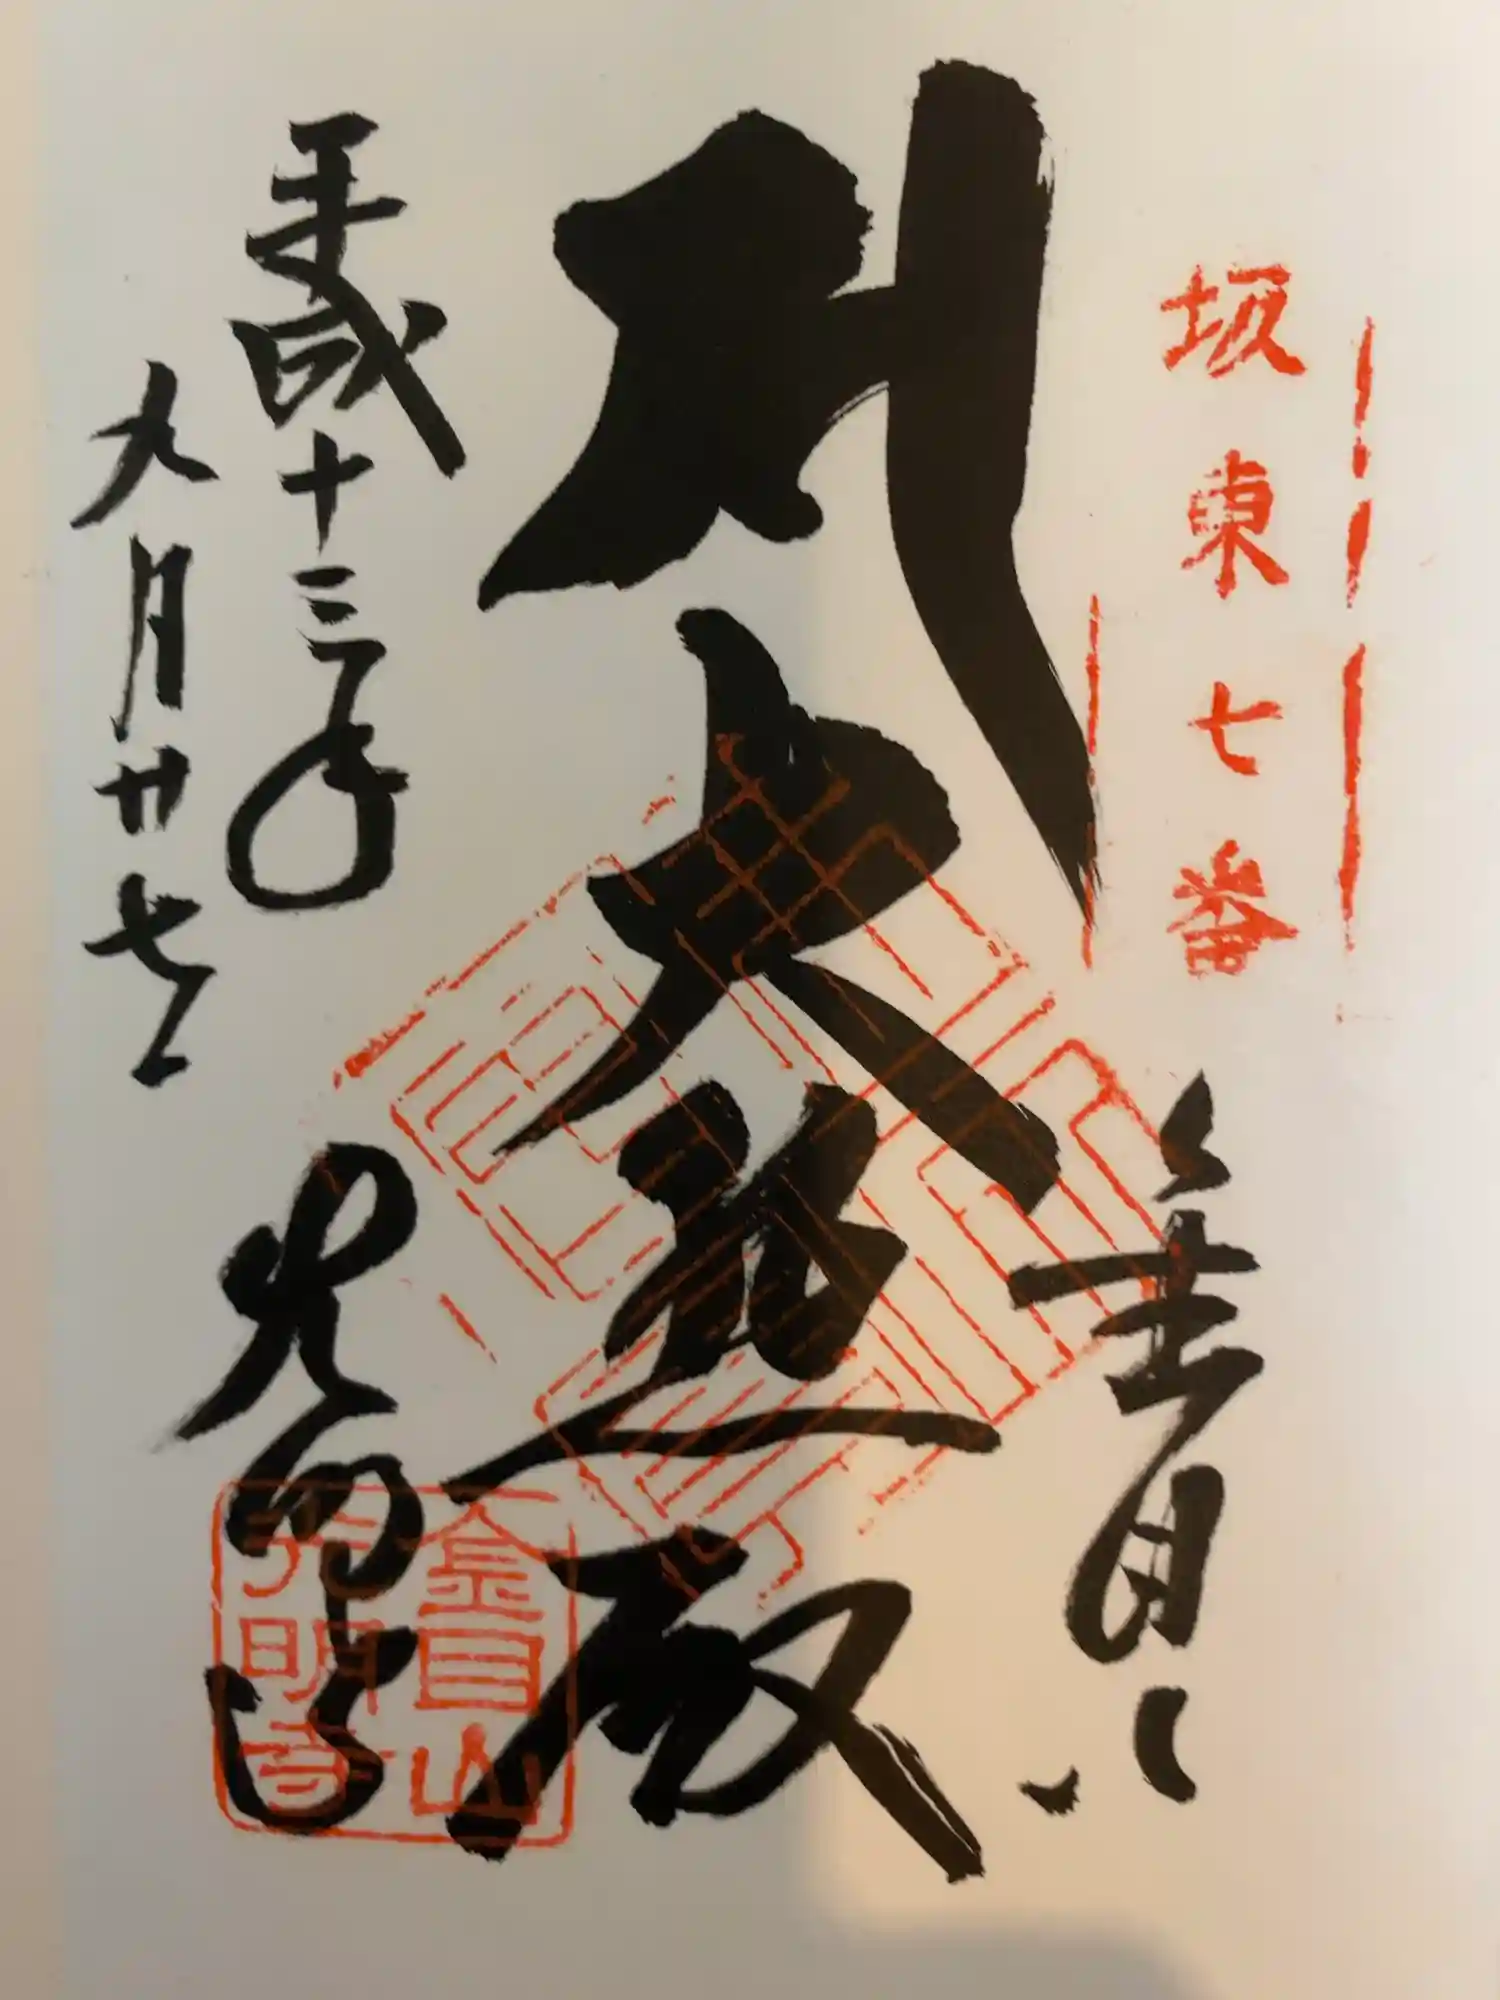 坂東七番
金目山
大悲殿
平成十三年
九月廿七日
光明寺
金目山
光明寺